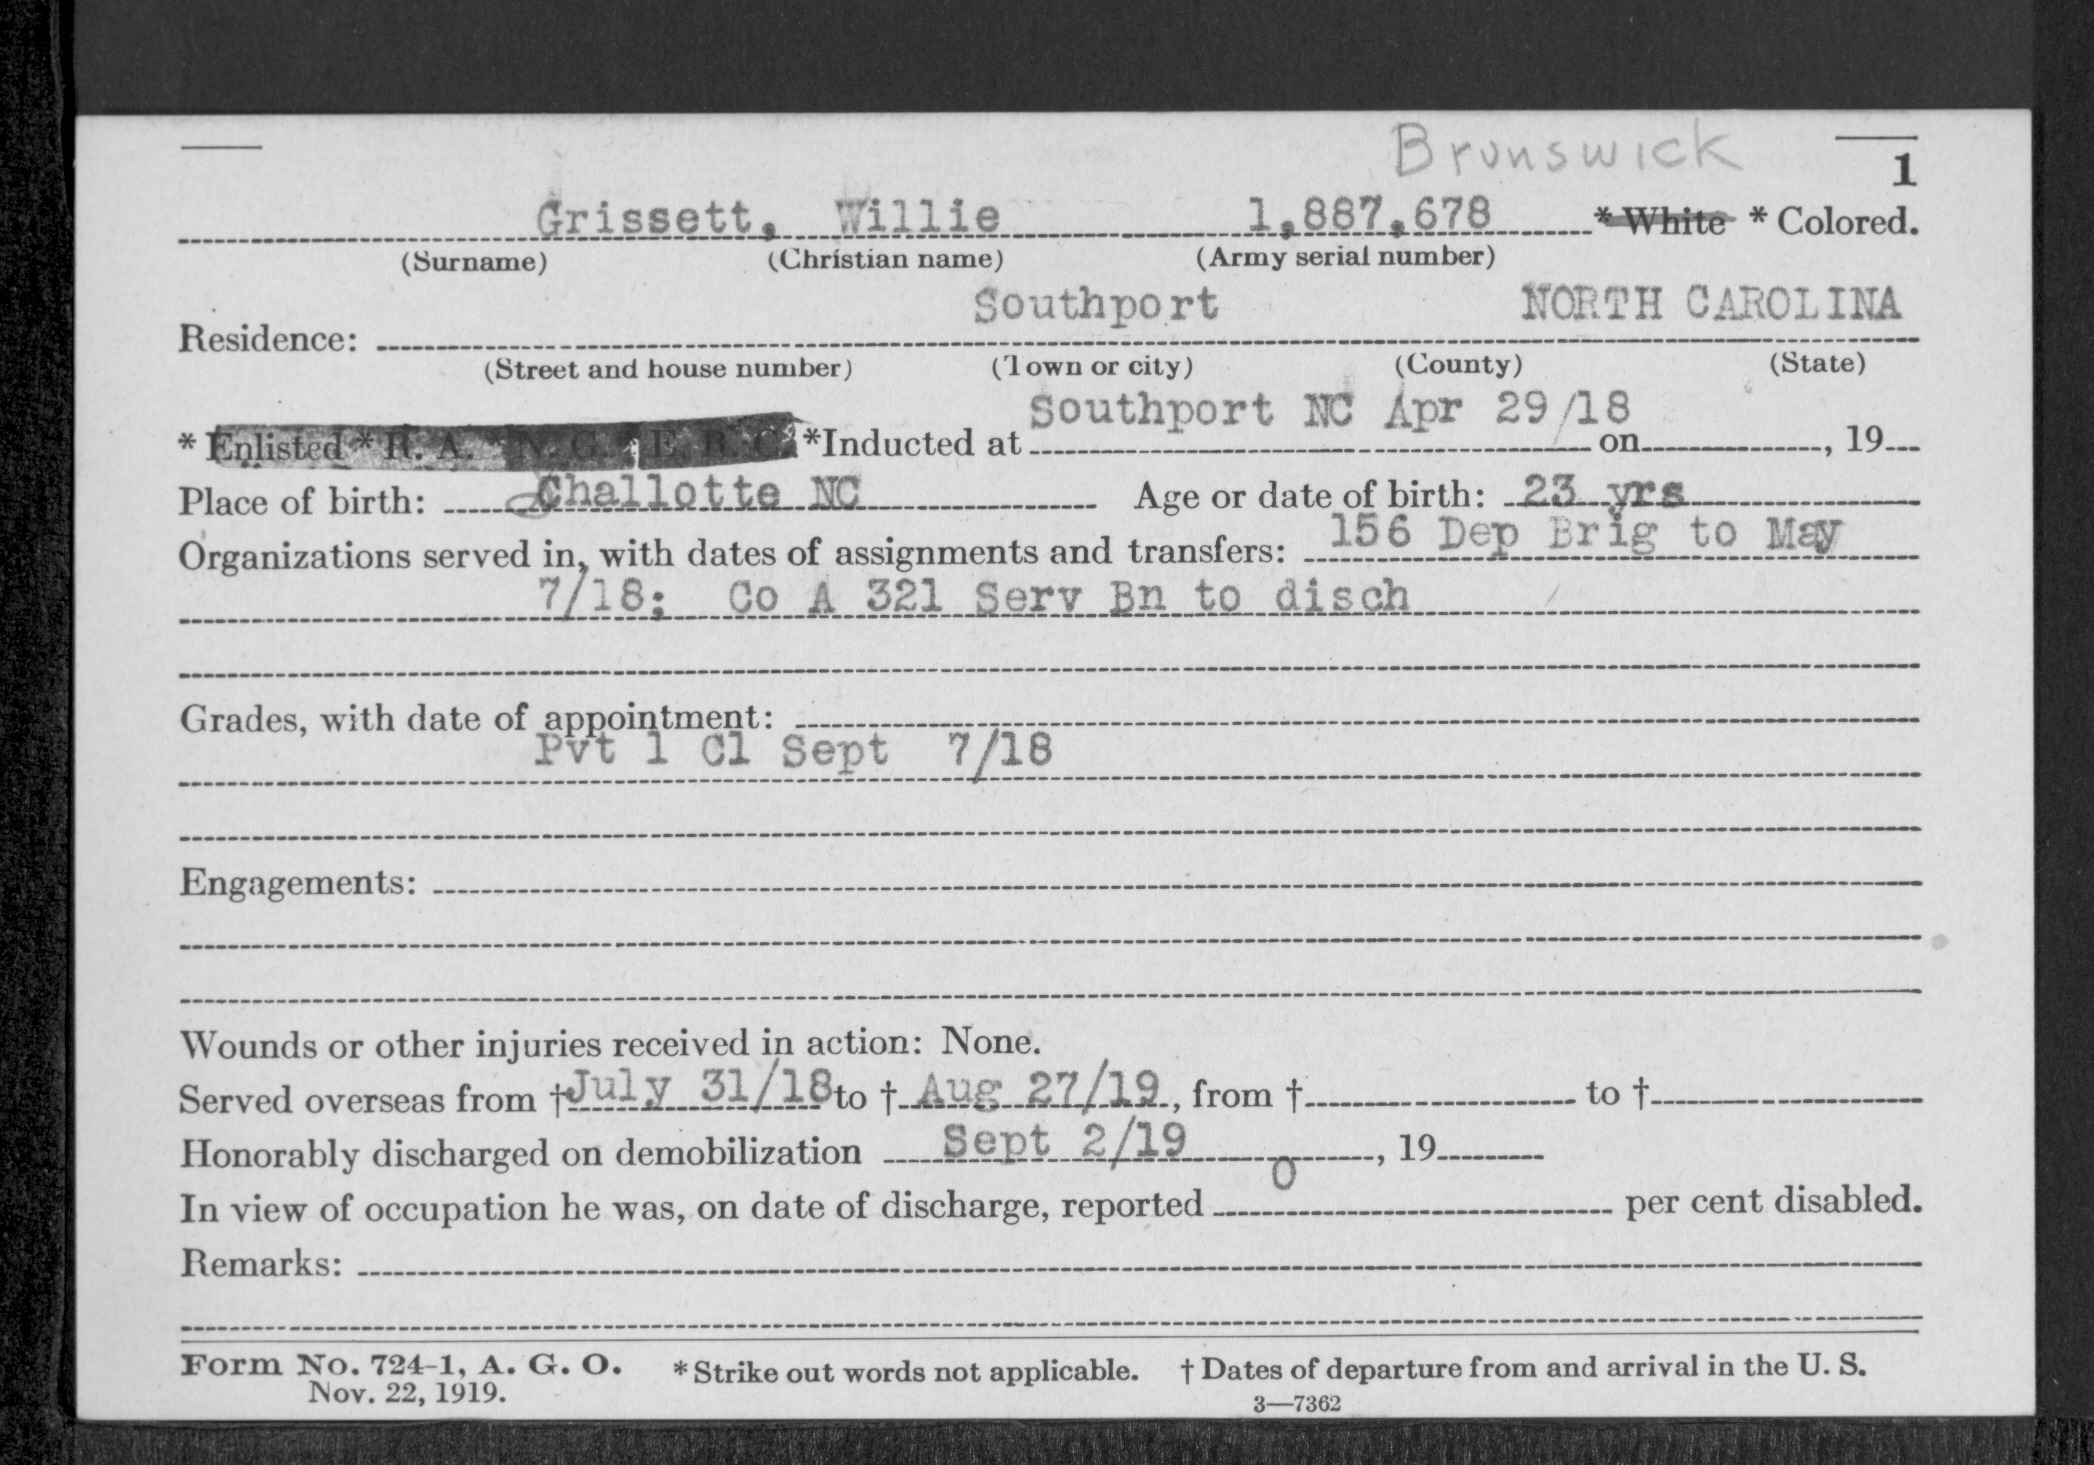 Brunswick
1
Grissett, Willie 1,887,678 * White * Colored.
(Surname) (Christian name) (Army serial number)
Southport NORTH CAROLINA
Residence:
(Street and house number) (Town or city) (County) (State)
Southport NC Apr 29/18
* Enlisted * R. A. * N. G. * E. R. C. *Inducted at on , 19
Place of birth: Challotte NC Age or date of birth: 23 yrs
Organizations served in, with dates of assignments and transfers: 156 Dep Brig to May
7/18; Co A 321 Serv Bn to disch
Grades, with date of appointment:
Pvt 1 Cl Sept 7/18
Engagements:
Wounds or other injuries received in action: None.
Served overseas from † July 31/18 to † Aug 27/19, from † to †
Honorably discharged on demobilization Sept 2/19 , 19
In view of occupation he was, on date of discharge, reported 0 per cent disabled.
Remarks:
Form No. 724-1, A. G. O. * Strike out words not applicable. † Dates of departure from and arrival in the U. S.
Nov. 22, 1919. 3—7362